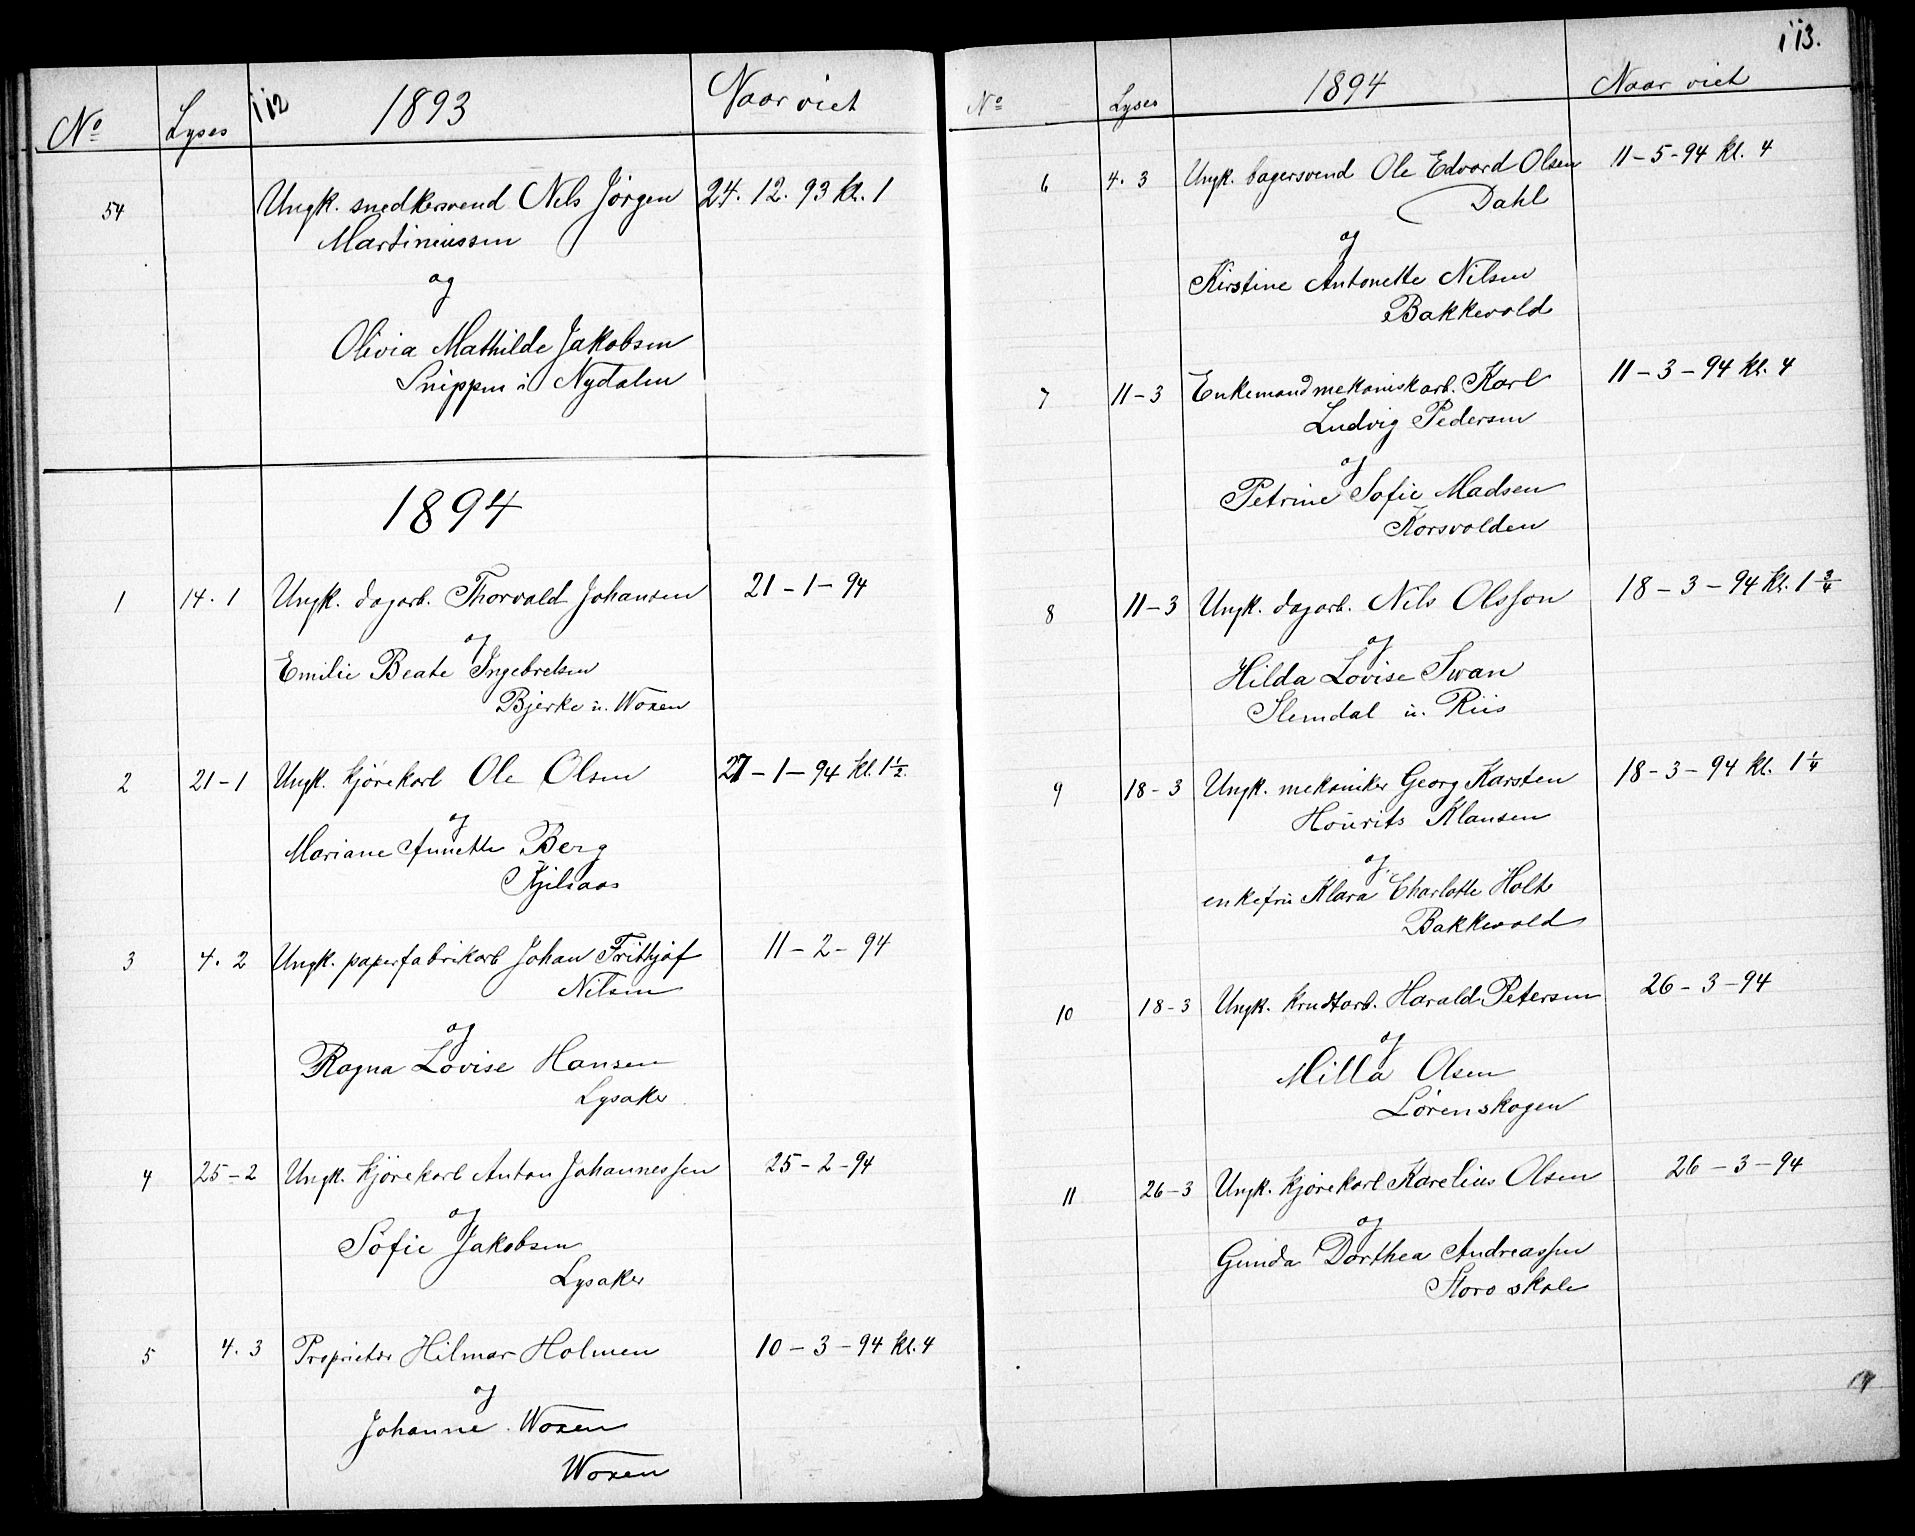 112
No Lyses 1893 Naar viet
54 Ungk. snedkersvend Nils Jörgen 24. 12. 93 kl. 1
Martiniussen
og
Olivia Mathilde Jakobsen
Snippen i Nydalen
1894
1 14. 1 Ungk. dagarb. Thorvald Johansen 21-1-94
og
Emilie Beate Ingebretsen
Bjerke u. Woxen
2 21-1 Ungk. kjörekarl Ole Olsen 27-1-94 kl. 1½.
og
Mariane Annette Berg
Kjilsaas
3 4. 2 Ungk. paperfabrikarb Johan Frithjof 11-2-94
Nilsen
og
Ragna Lovise Hansen
Lysaker
4 25-2 Ungk. kjörekarl Anton Johannessen 25-2-94
og
Sofie Jakobsen
Lysaker
5 4. 3 Proprietær Hilmar Holmen 10-3-94 kl. 4
og
Johanne Woxen
Woxen
113.
No Lyses 1894 Naar viet
6 4. 3 Ungk. bagersvend Ole Edvard Olsen 11-5-94 kl. 4
Dahl
og
Kirstine Antonette Nilsen
Bakkevold
7 11-3 Enkemand mekaniskarb. Karl 11-3-94 kl. 4
Ludvig Pedersen
og
Petrine Sofie Madsen
Korsvolden
8 11-3 Ungk. dagarb. Nils Olsson 18-3-94 kl. 1¾
og
Hilda Lovise Swan
Slemdal u. Riis
9 18-3 Ungk. mekaniker Georg Karsten 18-3-94 kl. 1¼
Hourits Klausen
og
enkefru Klara Charlotte Holt
Bakkevold
10 18-3 Ungk. krudtarb. Harald Petersen 26-3-94
og
Milla Olsen
Lörenskogen
11 26-3 Ungk. kjörekarl Karelius Olsen 26-3-94
og
Gunda Dorthea Andreassen
Storo skole